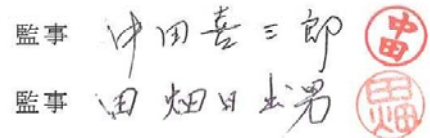 監事 中田喜三郎 中田
監事 田畑日出男 田畑